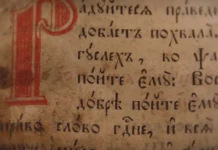 Радуйтесѧ праведн
добаетъ похвала.
гуслехъ, во ѱа
пойте є҆мꙋ: Вос
добрѣ пойте є҆мꙋ
право слово гдⷭ҇не, и всѧ